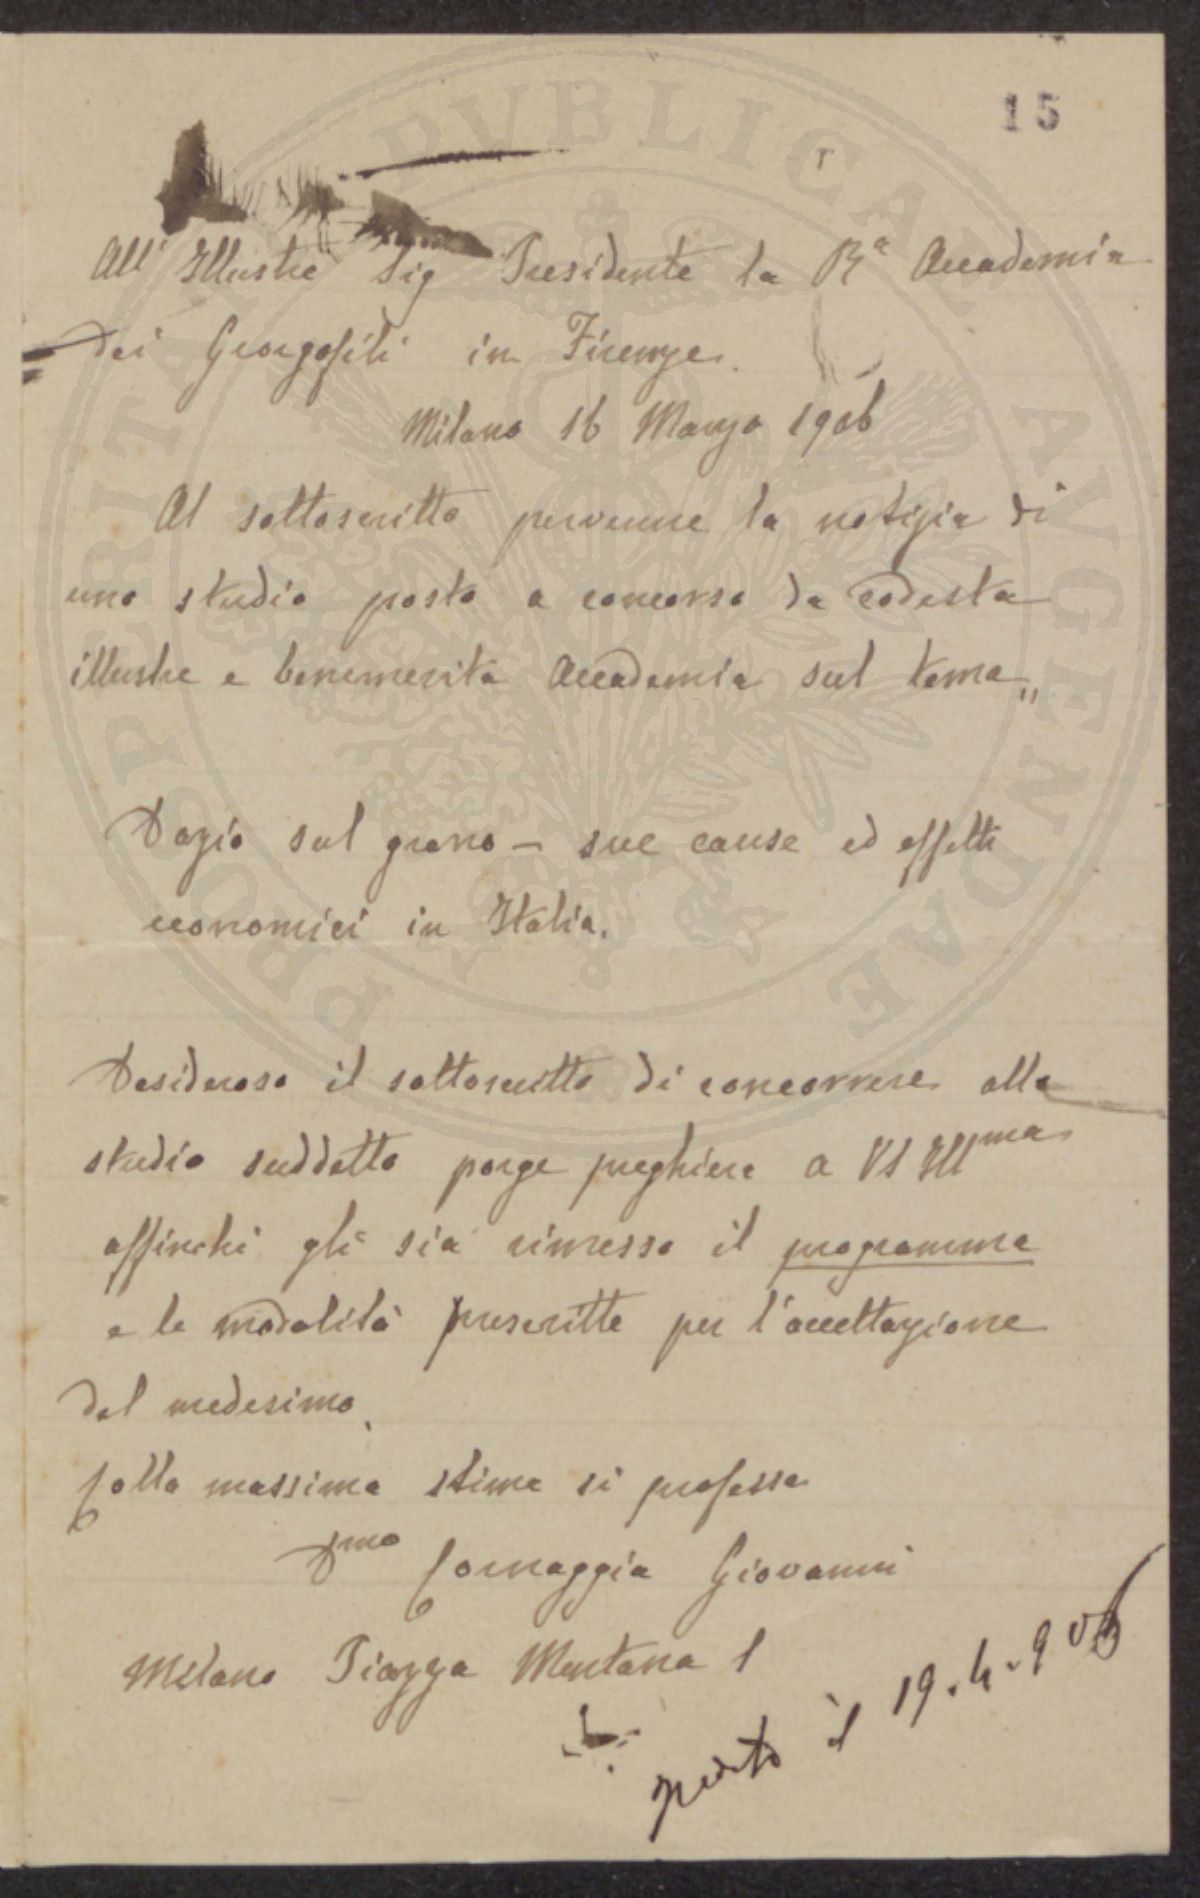 15
All' Illustre Sig Presidente la Rª Accademia
dei Georgofili in Firenze.
Milano 16 Marzo 1906
Al sottoscritto pervenne la notizia di
uno studio posto a concorso da codesta
illustre e benemerita Accademia sul tema „
Dazio sul grano – sue cause ed effetti
economici in Italia.
Desideroso il sottoscritto di concorrere allo
studio suddetto porge preghiera a VS Ill^ma
affinchi gli sia rimesso il programma
e le modalità prescritte per l'accettazione
del medesimo.
Colla massima stima si professa
D^mo Cornaggia Giovanni
Milano Piazza Mentana 1
il 19.4.906
PROSPERITATI PVBLICAE AVGENDAE